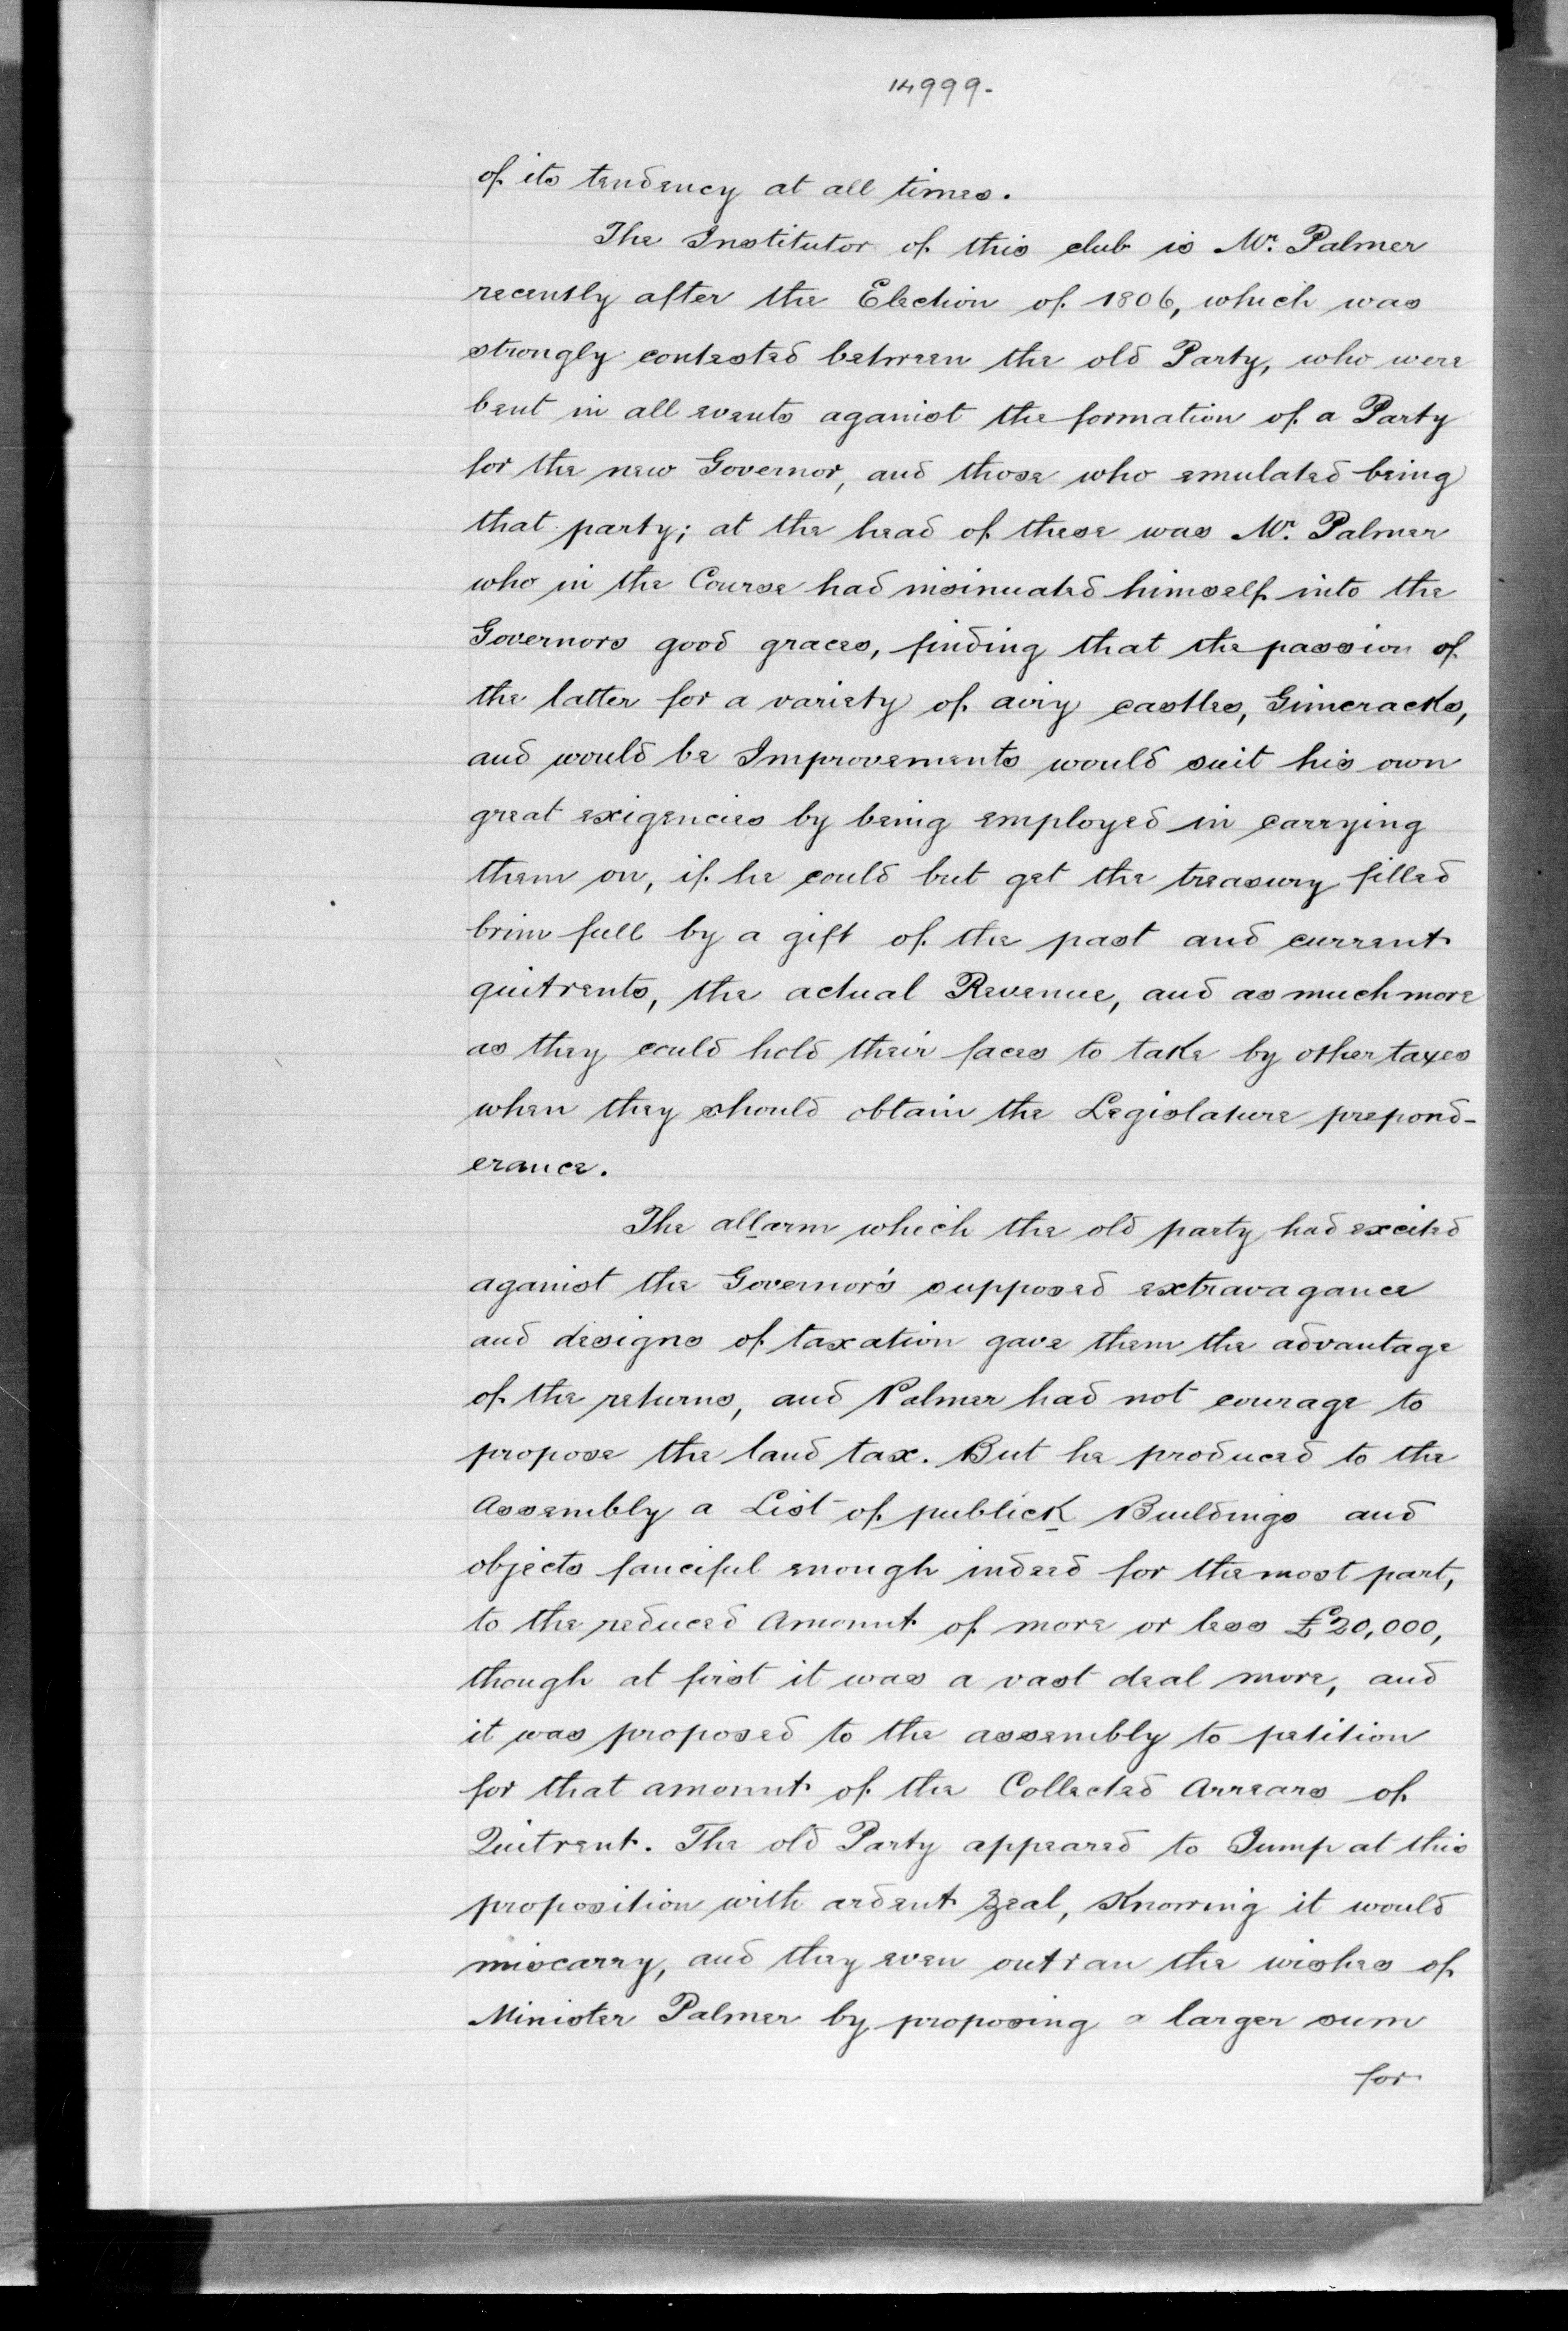 14999.
of its tendency at all times.
The Institutor of this club is Mr. Palmer
recently after the Election of 1806, which was
strongly contested between the old Party, who were
bent in all events against the formation of a Party
for the new Governor, and those who emulated being
that party; at the head of these was Mr. Palmer
who in the Course had insinuated himself into the
Governors good graces, finding that the passion of
the latter for a variety of airy castles, Gimcracks,
and would be Improvements would suit his own
great exigencies by being employed in carrying
them on, if he could but get the treasury filled
brim full by a gift of the past and current
quitrents, the actual Revenue, and as much more
as they could hold their faces to take by other taxes
when they should obtain the Legislature prepond-
erance.
The allarm which the old party had excited
against the Governor's supposed extravagance
and designs of taxation gave them the advantage
of the returns, and Palmer had not courage to
propose the land tax. But he produced to the
Assembly a List of publick Buildings and
objects fanciful enough indeed for the most part,
to the reduced Amount of more or less £20,000,
though at first it was a vast deal more, and
it was proposed to the assembly to petition
for that amount of the Collected Arrears of
Quitrent. The old Party appeared to Jump at this
proposition with ardent Zeal, Knowing it would
miscarry, and they even outran the wishes of
Minister Palmer by proposing a larger sum
for